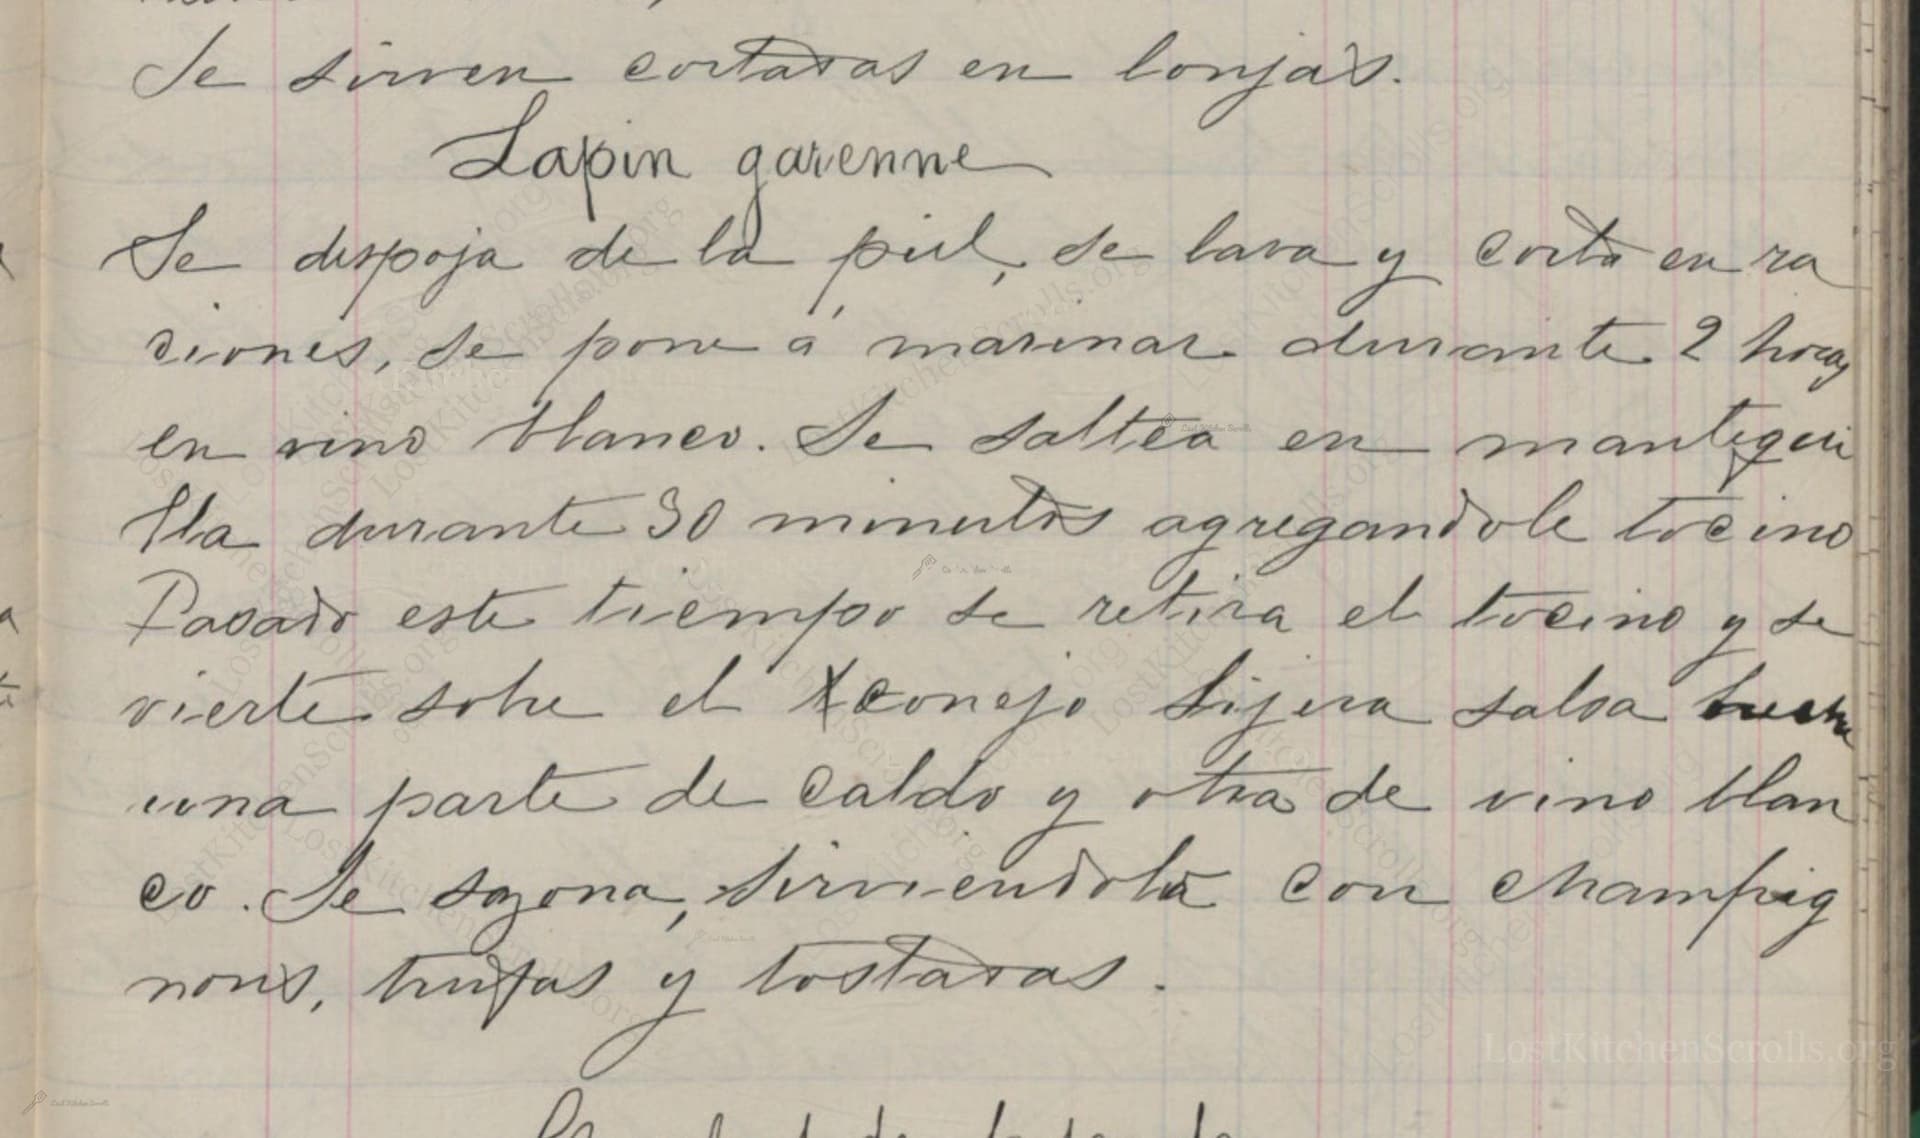 Se sirven cortadas en lonjas.
Lapin garenne
Se despoja de la piel, se lava y corta en ra
ciones, se pone á marinar durante 2 horas
en vino blanco. Se saltea en mantequi
lla durante 30 minutos agregandole tocino
Pasado este tiempo se retira el tocino y se
vierte sobre el conejo lijera salsa
una parte de caldo y otra de vino blan
co. Se sazona, sirviendola con champig
nons, trufas y tostadas.
LostKitchenScrolls.org